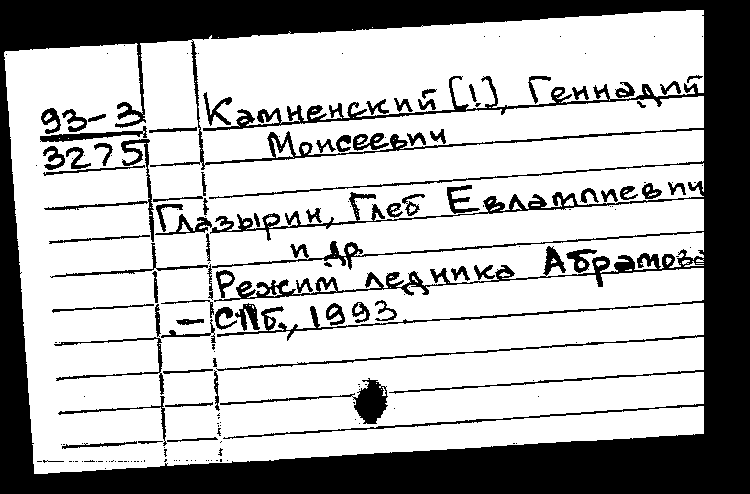 93-3
3275
Камненский [!], Геннадий
Моисеевич
Глазырин, Глеб Евлампиевич
и др.
Режим ледника Абрамова
.— СПб., 1993.